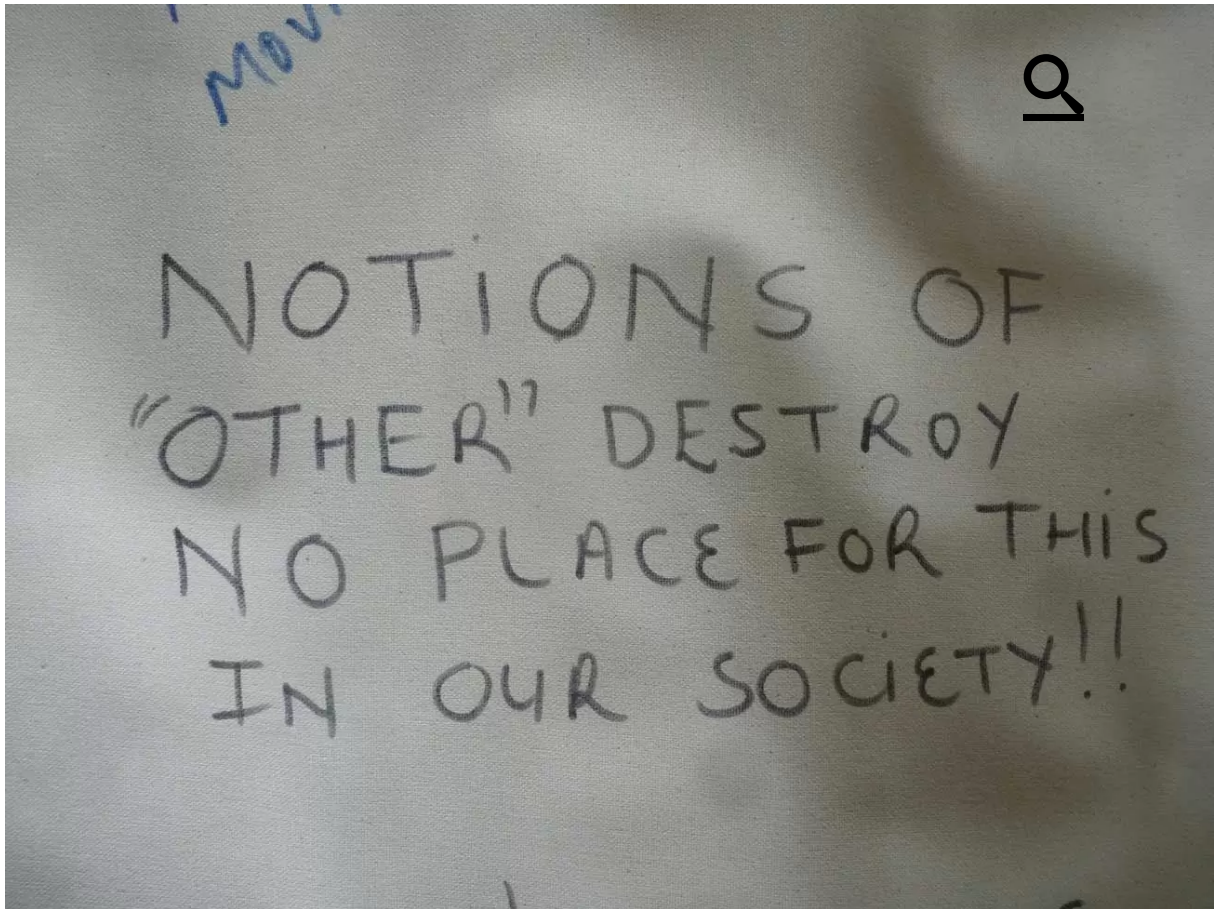 NOTiONS OF
"OTHER" DESTROY
NO PLACE FOR THiS
IN OUR SOCiETY!!